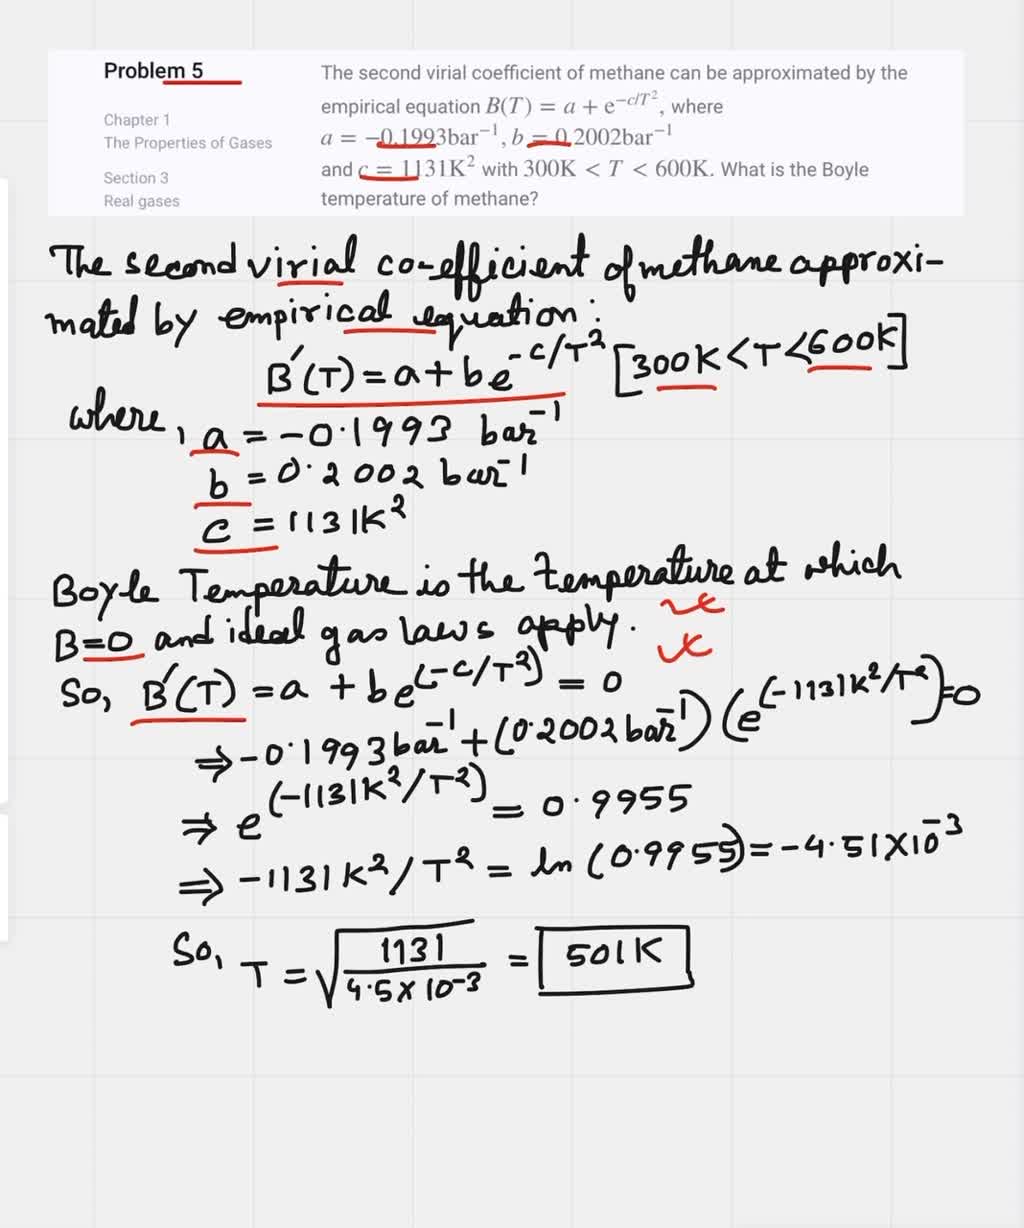 Problem 5
Chapter 1
The Properties of Gases
Section 3
Real gases
The second virial coefficient of methane can be approximated by the
empirical equation B(T) = a + e^{-c/T^2}, where
a = −0.1993bar^{-1}, b = 0.2002bar^{-1}
and c = 1131K^2 with 300K < T < 600K. What is the Boyle
temperature of methane?
The second virial co-efficient of methane approxi-
mated by empirical equation:
B'(T) = a + be^{-c/T^2} [300K < T < 600K]
where, a = -0.1993 bar^{-1}
b = 0.2002 bar^{-1}
c = 1131K^2
Boyle Temperature is the temperature at which
B=0 and ideal gas laws apply.
So, B'(T) = a + be^{(-c/T^2)} = 0
⇒ -0.1993bar^{-1} + (0.2002bar^{-1}) (e^{(-1131K^2/T^2)}) = 0
⇒ e^{(-1131K^2/T^2)} = 0.9955
⇒ -1131K^2/T^2 = ln (0.9955) = -4.51X10^{-3}
So, T = √(1131/4.5X10^{-3}) = 501K